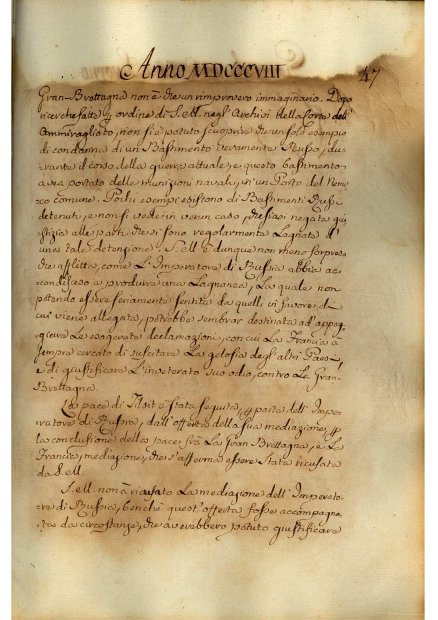 Anno MDCCCVIII 47
Gran-Brettagna non è che un rimprovero immaginario. Dopo
ricerche fatte per ordine di S. M. negl'Archivi della Corte dell'
Ammiragliato, non si è potuto scuoprire che un solo esempio
di condanna di un Bastimento veramente Russo, du-
rante il corso della guerra attuale; e questo bastimento
avea portato delle munizioni navali, in un Porto del Nemi-
co comune. Pochi esempi esistono di Bastimenti Russi
detenuti, e non si vede in verun caso, che siasi negata giu-
stizia alle parti che si sono regolarmente lagnate d'
una tale detenzione. S. M. è dunque non meno sorpresa
che afflitta, come L'Imperatore di Russia abbia ac-
condisceso a produrre una Lagnanza, La quale non
potendo essere seriamente sentita da quelli in favore di
cui viene allegata, potrebbe sembrar destinata ad appog-
giare Le esagerate declamazioni, con cui La Francia à
sempre cercato di suscitare La gelosia degl'altri Paesi,
e di giustificare L'inveterato suo odio, contro La Gran-
Brettagna.
La pace di Tilsit è stata seguita, per parte dell'Impe-
ratore di Russia, dall'offerta della sua mediazione, per
la conclusione della pace frà La Gran Brettagna, e La
Francia; mediazione, che s'afferma essere stata ricusata
da S. M.
S. M. non à ricusato La mediazione dell'Imperato-
re di Russia, benchè quest'offerta fosse accompagna-
ta da circostanze, che averebbero potuto giustificare